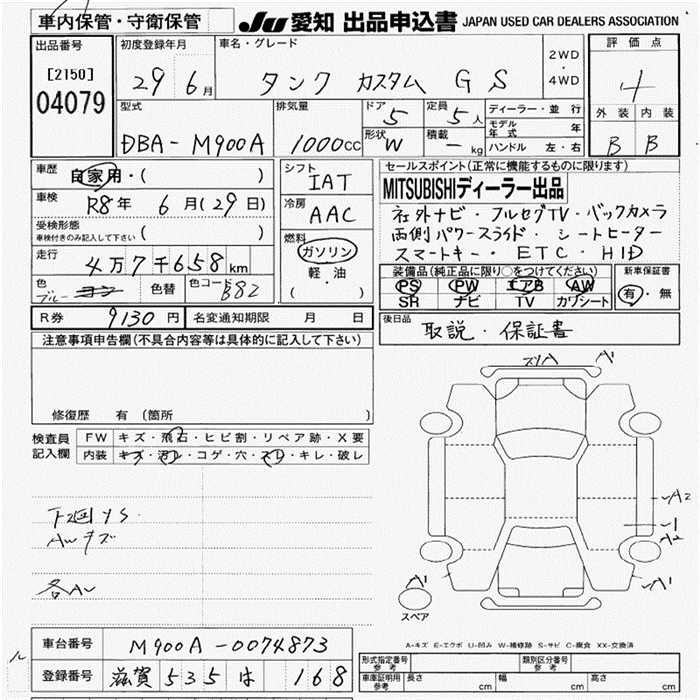 車内保管・守衛保管
JU 愛知 出品申込書 JAPAN USED CAR DEALERS ASSOCIATION
出品番号
[2150]
04079
初度登録年月
29 6月
車名・グレード
タンク カスタム G S
2WD
・
4WD
評価点
4
外装 内装
B B
型式
DBA-M900A
排気量
1000cc
ドア 5
形状 W
定員 5人
積載 - kg
ディーラー・並行
モデル年式 年
ハンドル 左・右
車歴
自家用・( )
車検
R8年 6月(29日)
受検形態
車検付きのみ記入して下さい ( )
走行
4万7千658km
色
ブルー
色替
色コード B82
シフト
IAT
冷房
AAC
燃料
ガソリン
軽・油
( )
セールスポイント(正常に機能するものに限ります)
MITSUBISHIディーラー出品
社外ナビ・フルセグTV・バックカメラ
両側パワースライド・シートヒーター
スマートキー・ETC・HID
装備品(純正品に限り○をつけてください)
PS PW エアB AW
SR ナビ TV カワシート
新車保証書
有・無
R券 9130円 名変通知期限 月 日
後日品
取説・保証書
注意事項申告欄(不具合内容等は具体的に記入して下さい)
修復歴 有 (箇所
検査員
記入欄
FW キズ・飛石・ヒビ割・リペア跡・X要
内装 キズ・汚レ・コゲ・穴・スレ・キレ・破レ
下回りS
AWキズ
各AU
A A1
A2
A2
A1
A1
スペア
A-キズ E-エクボ U-凹み W-補修跡 S-サビ C-腐食 XX-交換済
車台番号 M900A-0074873
登録番号 滋賀 535 は 168
形式指定番号 参考
類別区分番号 参考
車庫証明用 参考 長さ cm 幅 cm 高さ cm